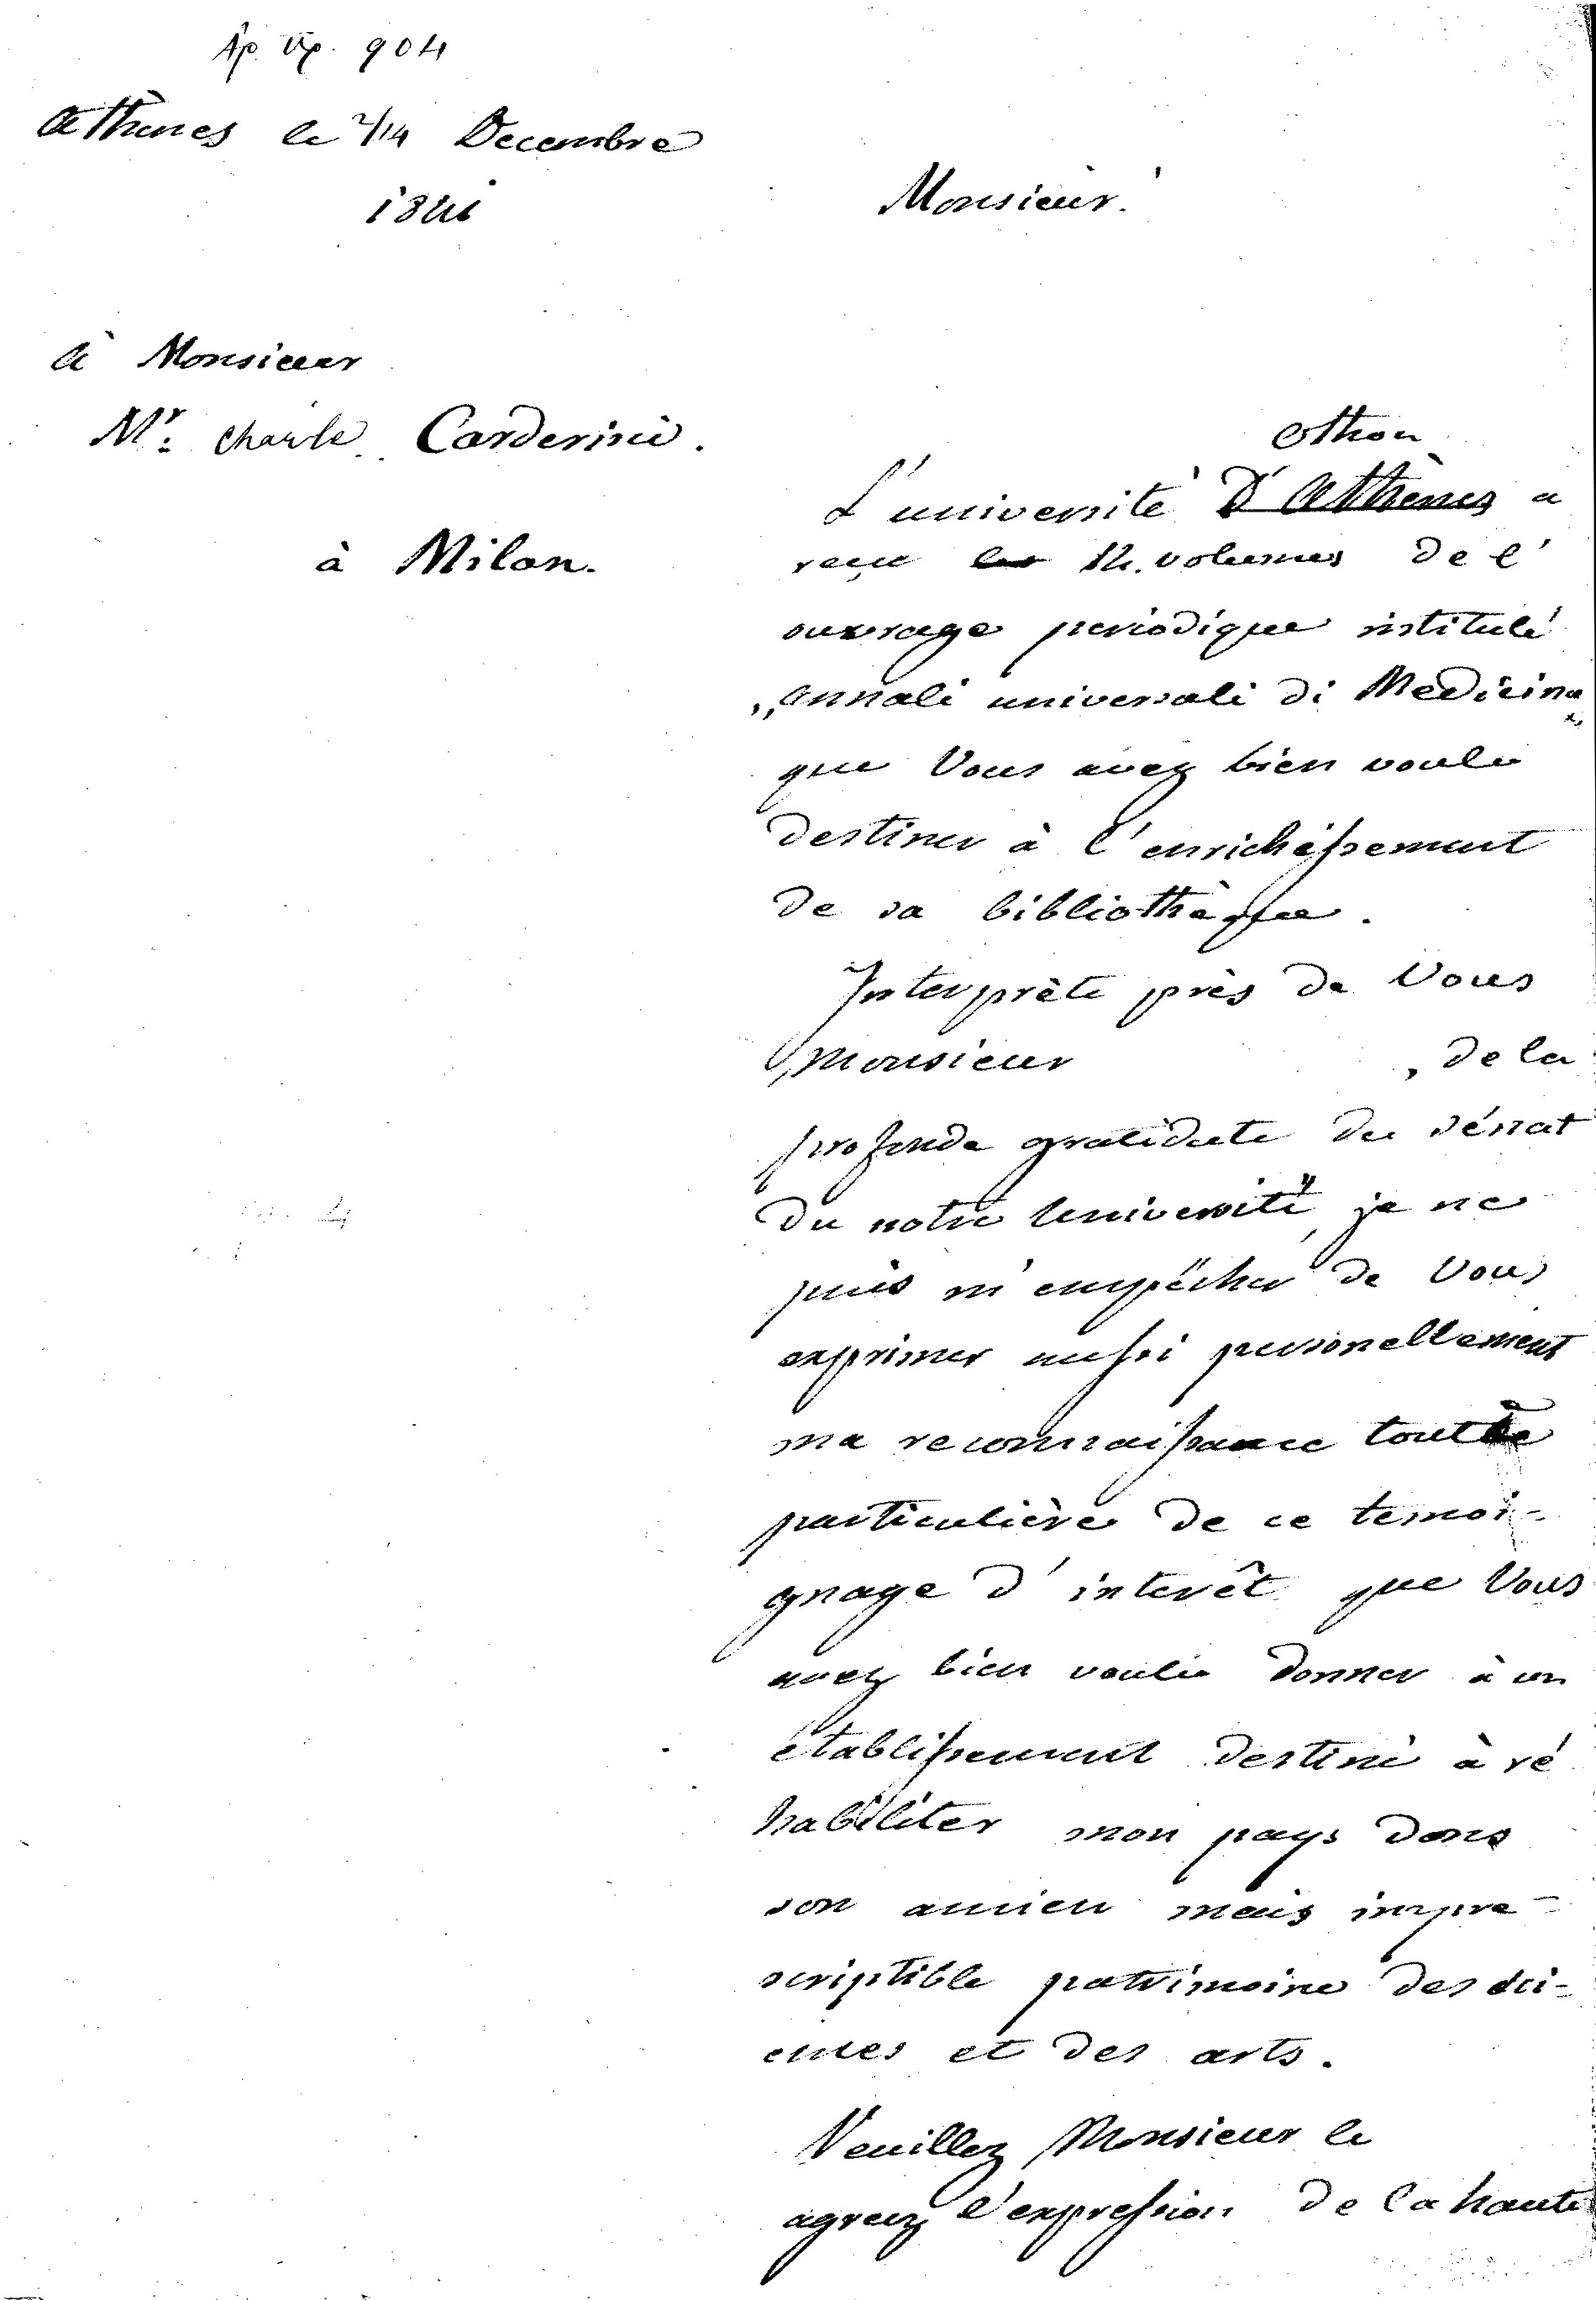 Ἀρ. πρ. 904
Athènes le 2/14 Decembre
1841
Monsieur!
à Monsieur
Mr. Charle Carderini.
à Milan.
Othon
L'université D'Athènes a
reçu les 12. volumes de l'
ouvrage periodique institulé
„annali universali di Medicina“
que Vous avez bien voulu
destiner à l'enrichissement
de sa bibliothèque.
Interprète près de Vous
Monsieur, de la
profonde gratidute du sénat
du notre Université, je ne
puis m'empêcher de Vous
exprimer aussi personellement
ma reconnaissance toute
particulière de ce temoi-
gnage d'interêt que Vous
avez bien voulu donner à un
établissement destiné à ré
habiliter mon pays dans
son ancien mais impre-
scriptible patrimoine des sci-
ences et des arts.
Veuillez Monsieur le
agreez l'expression de la haute